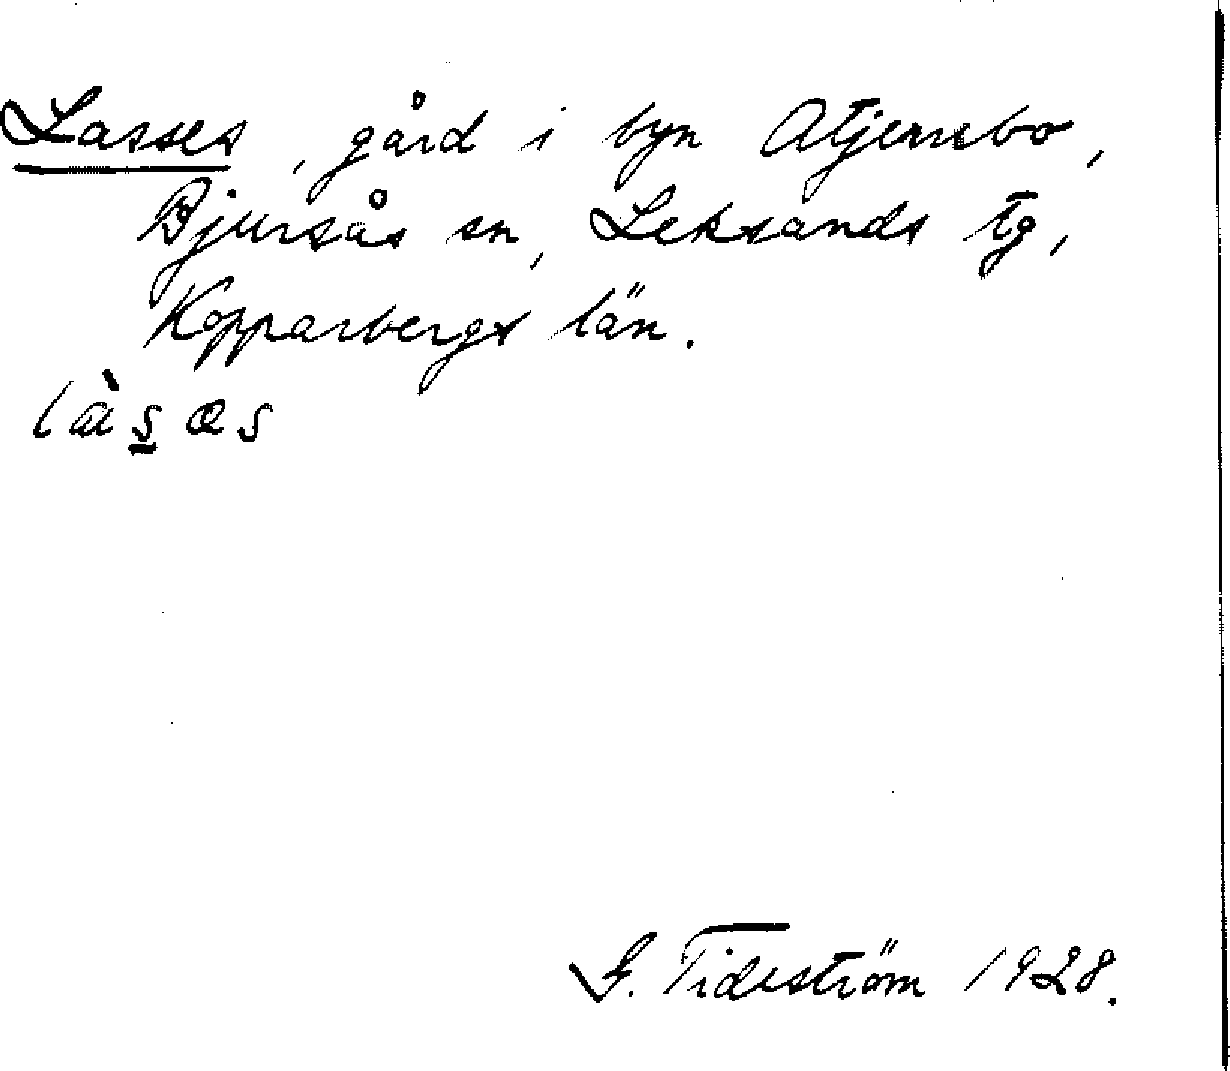 Lasses, gård i byn Atjernbo,
Bjursås sn, Leksands tg,
Kopparbergs län.
G. Tideström 1928.